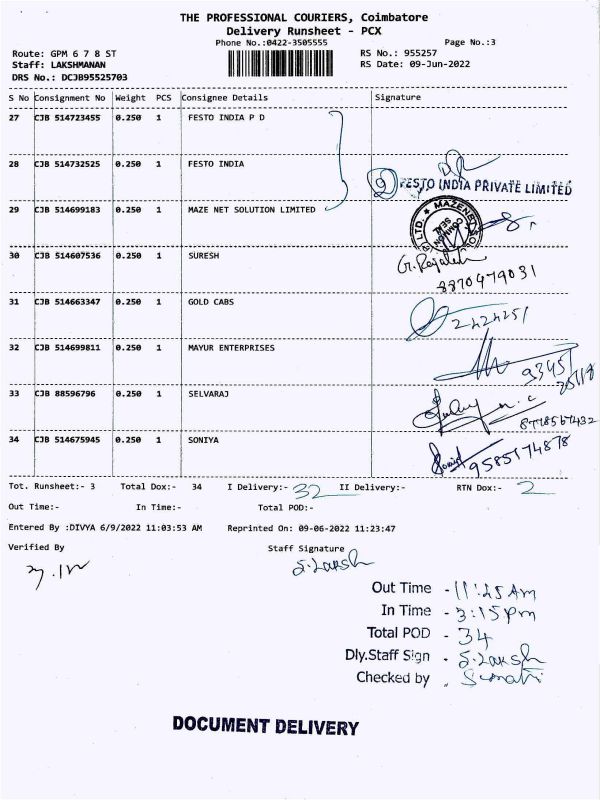 THE PROFESSIONAL COURIERS, Coimbatore
Delivery Runsheet - PCX
Phone No.:0422-3505555
Page No.:3
Route: GPM 6 7 8 ST
RS No.: 955257
Staff: LAKSHMANAN
RS Date: 09-Jun-2022
DRS No.: DCJB95525703
S No Consignment No Weight PCS Consignee Details Signature
27 CJB 514723455 0.250 1 FESTO INDIA P D
28 CJB 514732525 0.250 1 FESTO INDIA
FESTO INDIA PRIVATE LIMITED
29 CJB 514699183 0.250 1 MAZE NET SOLUTION LIMITED
COMMON SEAL
30 CJB 514607536 0.250 1 SURESH
8870479031
31 CJB 514663347 0.250 1 GOLD CABS
2424251
32 CJB 514699811 0.250 1 MAYUR ENTERPRISES
93451
33 CJB 88596796 0.250 1 SELVARAJ
34 CJB 514675945 0.250 1 SONIYA
9585174878
Tot. Runsheet:- 3 Total Dox:- 34 I Delivery:- 32 II Delivery:- RTN Dox:- 2
Out Time:- In Time:- Total POD:-
Entered By :DIVYA 6/9/2022 11:03:53 AM Reprinted On: 09-06-2022 11:23:47
Verified By Staff Signature
S.Laksh
Out Time - 11:25 Am
In Time - 3:15 Pm
Total POD - 34
Dly.Staff Sign - S.Laksh
Checked by -
DOCUMENT DELIVERY